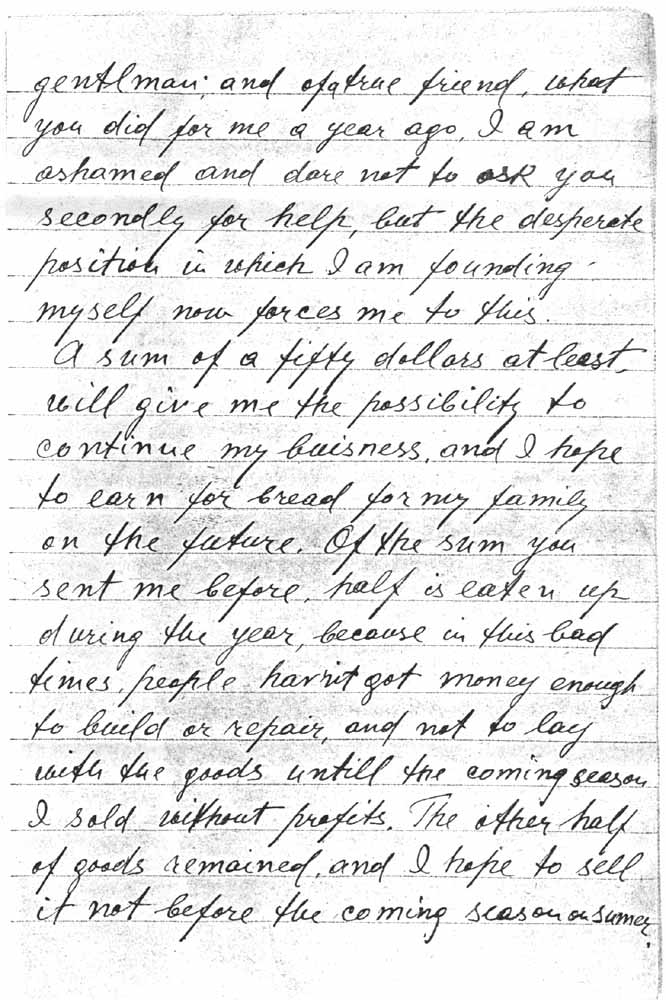 gentlman; and of a true friend, what
you did for me a year ago, I am
ashamed and dare not to ask you
secondly for help, but the desperate
position in which I am founding
myself now forces me to this.
A sum of a fifty dollars at least,
will give me the possibility to
continue my buisness, and I hope
to earn for bread for my family
on the future. Of the sum you
sent me before, half is eaten up
during the year, because in this bad
times, people havn't got money enough
to build or repair, and not to lay
with the goods untill the coming season
I sold without profits. The other half
of goods remained, and I hope to sell
it not before the coming season on sumer.